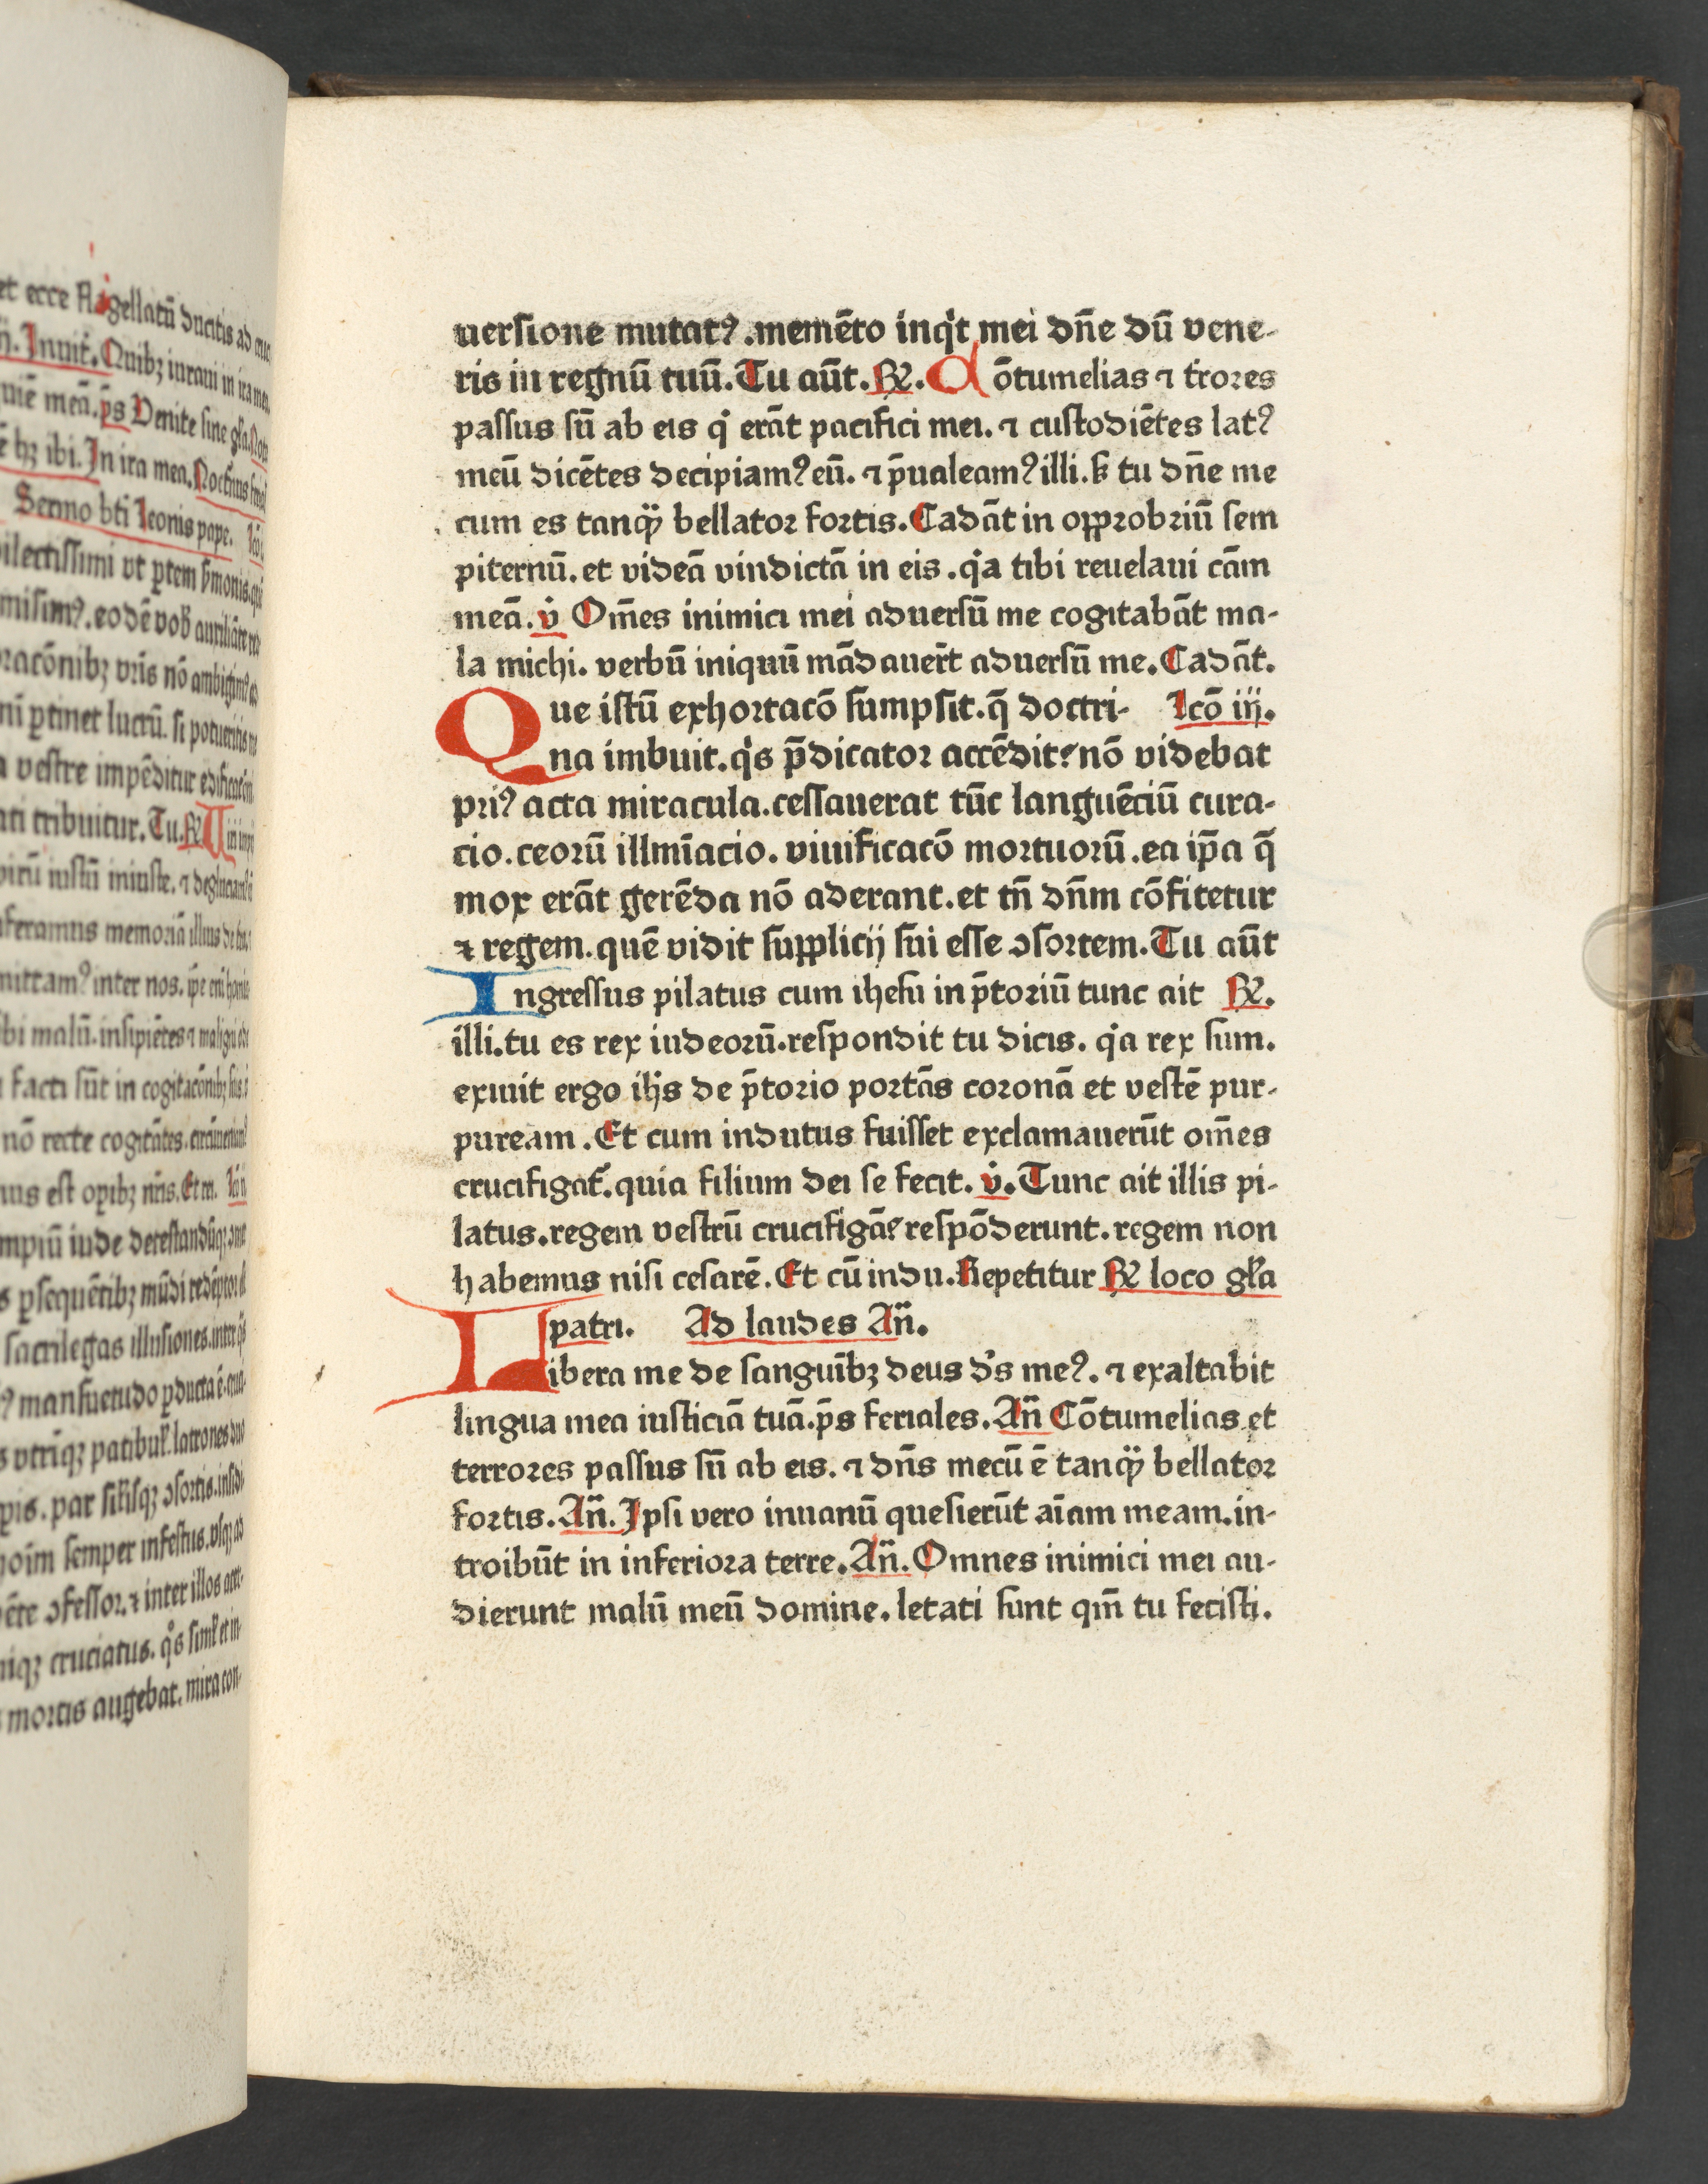 et ecce flagellatū ducitis ad cruc
Inuit. Quibꝫ iuraui in ira mea.
mē meā. p̄s Venite sine gl̓a. Nota
ibi. In ira mea.
Sermo bti Leonis pape.
dilectissimi vt ꝑtem
eodē vob̓
oracōnibꝫ vr̄is nō ambigim⁹
ꝑtinet lucrū. si potueritis
vestre impēditur
tribuitur. Tu. ℟
virū iustū iniuste. ⁊
feramus memoriā illius de
mittam⁹ inter nos. ip̄e eni
bi malū. insipiētes ⁊ maligni
facti sūt in cogitacōnibꝫ suis
nō recte cogitātes.
est opibꝫ nr̄is. Et m.
impiū iude
ꝑsequētibꝫ mūdi redēptor.
sacrilegas illusiones.
mansuetudo ꝓducta ē.
vtriqꝫ patibul̓. latrones duo
par sil̓isqꝫ ꝯsortis. insidi
semper infestus. vsqꝫ ad
ꝯfessor. ⁊ inter illos
cruciatus. q̊s simul̓ et in-
mortis augebat. mira con-
uersione mutat⁹. memēto inq̇t mei dn̄e dū vene-
ris in regnū tuū. Tu aūt. ℟. Cōtumelias ⁊ t̓rores
passus sū ab eis q̇ erāt pacifici mei. ⁊ custodiētes lat⁹
meū dicētes decipiam⁹ eū. ⁊ p̄ualeam⁹ illi. ꝭ tu dn̄e me
cum es tanqꝫ̄ bellator fortis. Cadāt in opprobriū sem
piternū. et videā vindictā in eis. q̇a tibi reuelaui cām
meā. v̇ Om̄es inimici mei aduersū me cogitabāt ma-
la michi. verbū iniquū mādauer̄t aduersū me. Cadāt.
Que istū exhortacō sumpsit. q̄ doctri- Lcō iij.
na imbuit. q̇s p̄dicator accēdit? nō videbat
pri⁹ acta miracula. cessauerat tūc languēciū cura-
cio. ceorū illmīacio. viuificacō mortuorū. ea ip̄a q̄
mox erāt gerēda nō aderant. et tn̄ dn̄m cōfitetur
⁊ regem. quē vidit supplicij sui esse ꝯsortem. Tu aūt
Ingressus pilatus cum ihesu in p̄toriū tunc ait ℟.
illi. tu es rex iudeorū. respondit tu dicis. q̇a rex sum.
exiuit ergo ih̄s de p̄torio portās coronā et vestē pur-
puream. Et cum indutus fuisset exclamauerūt om̄es
crucifigat̓. quia filium dei se fecit. v̇. Tunc ait illis pi-
latus. regem vestrū crucifigā? respōderunt. regem non
habemus nisi cesarē. Et cū indu. Repetitur ℟ loco gl̓a
patri. Ad laudes An̄.
Libera me de sanguībꝫ deus d̓s me⁹. ⁊ exaltabit
lingua mea iusticiā tuā. p̄s feriales. An̄ Cōtumelias et
terrores passus sū ab eis. ⁊ dn̄s mecū ē tanqꝫ̄ bellator
fortis. An̄. Ipsi vero inuanū quesierūt aīam meam. in-
troibūt in inferiora terre. An̄. Omnes inimici mei au-
dierunt malū meū domine. letati sunt qm̄ tu fecisti.